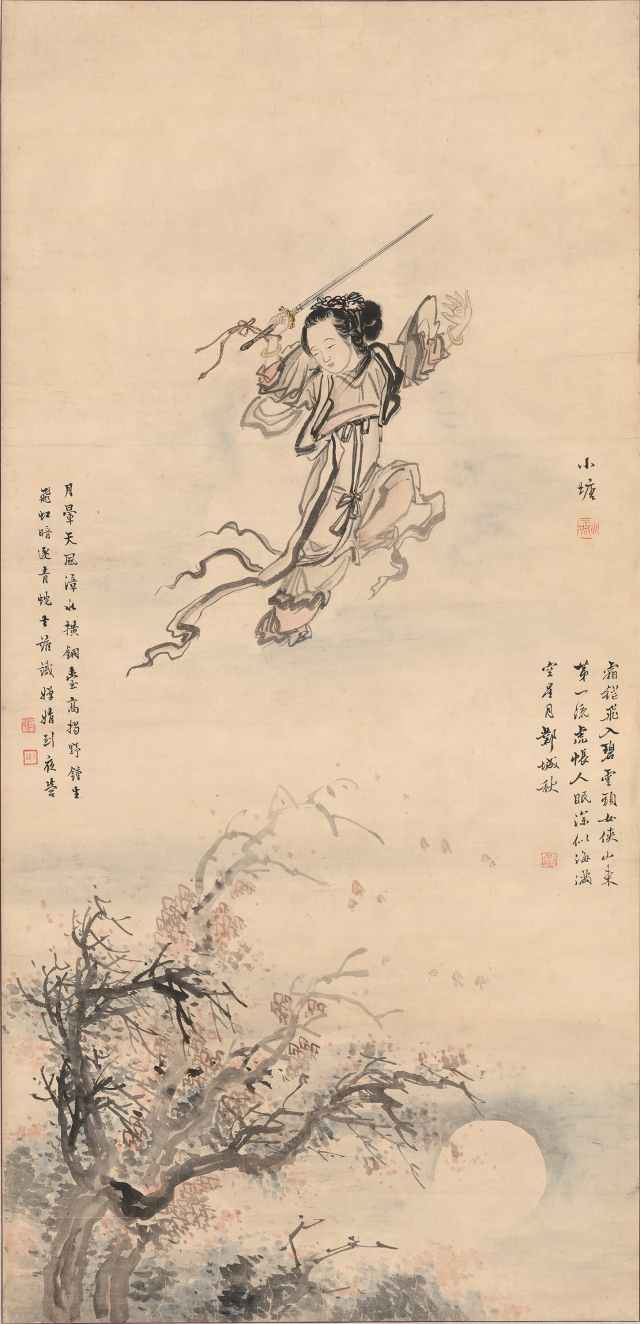 小塘
霜稜飛入碧雲頭女俠山東
第一流虎帳人眠深似海滿
空星月鄴城秋
月暈天風漳水橫銅臺高揭野鐘生
飛虹暗逐青蛻去誰識嬋娟到夜營